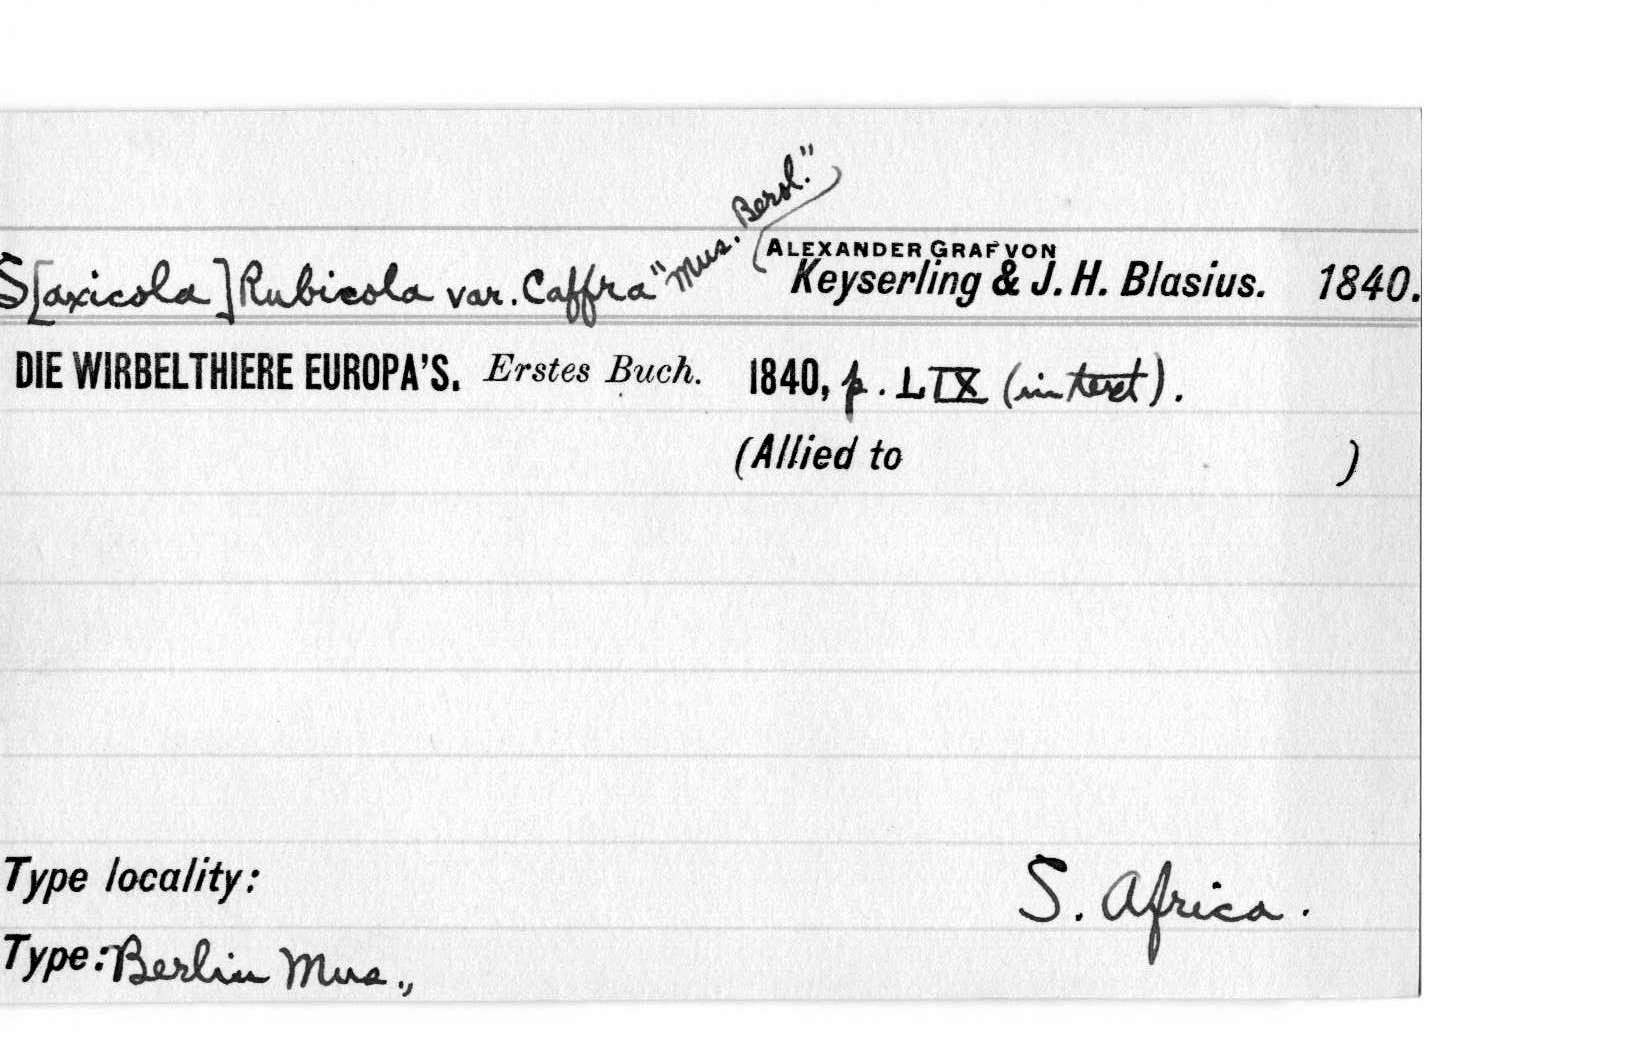 S[axicola] Rubicola var. Caffra "Mus. Berol." ALEXANDER GRAF VON
Keyserling & J. H. Blasius. 1840.
DIE WIRBELTHIERE EUROPA'S. Erstes Buch. 1840, p. LIX (in text).
(Allied to )
Type locality: S. Africa.
Type: Berlin Mus.,